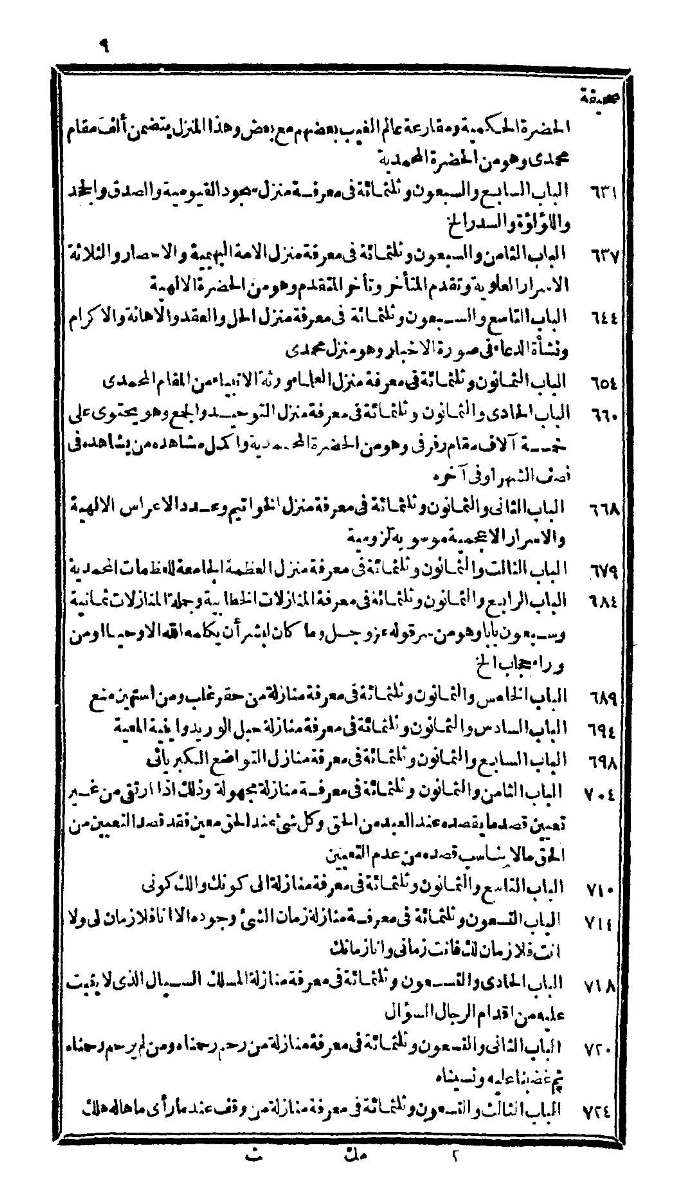 ٩
صحيفة
الحضرة الحكمية ومقارعة عالم الغيب بعضهم مع بعض وهذا المنزل يتضمن ألف مقام
محمدى وهو من الحضرة المحمدية
٦٣١ الباب السابع والسبعون وثلثمائة فى معرفة منزل سجود القيومية والصدق والمجد
واللؤلؤة والسدر الخ
٦٣٧ الباب الثامن والسبعون وثلثمائة فى معرفة منزل الامة البهيمية والاحصار والثلاثة
الاسرار العلوية وتقدم المتأخر وتأخر المتقدم وهو من الحضرة الالهية
٦٤٤ الباب التاسع والسبعون وثلثمائة فى معرفة منزل الحل والعقد والاهانة والاكرام
ونشأة الدعاء فى صورة الاخبار وهو منزل محمدى
٦٥٤ الباب الثمانون وثلثمائة فى معرفة منزل العلماء ورثة الانبياء من المقام المحمدى
٦٦٠ الباب الحادى والثمانون وثلثمائة فى معرفة منزل التوحيد والجمع وهو يحتوى على
خمسة آلاف مقام رفرفى وهو من الحضرة المحمدية وأكمل مشاهده من يشاهده فى
نصف الشهر أو فى آخره
٦٦٨ الباب الثانى والثمانون وثلثمائة فى معرفة منزل الخواتيم وعدد الاعراس الالهية
والاسرار الاعجمية موسوية لزومية
٦٧٩ الباب الثالث والثمانون وثلثمائة فى معرفة منزل العظمة الجامعة للعظمات المحمدية
٦٨٤ الباب الرابع والثمانون وثلثمائة فى معرفة المنازلات الخطابية وجملة المنازلات ثمانية
وسبعون بابا وهو من سر قوله عز وجل وما كان لبشر أن يكلمه الله الا وحيا او من
وراء حجاب الخ
٦٨٩ الباب الخامس والثمانون وثلثمائة فى معرفة منازلة من حقر غلب ومن استهين منع
٦٩٤ الباب السادس والثمانون وثلثمائة فى معرفة منازلة حبل الوريد واينية المعية
٦٩٨ الباب السابع والثمانون وثلثمائة فى معرفة منازل التواضع الكبريائى
٧٠٤ الباب الثامن والثمانون وثلثمائة فى معرفة منازلة مجهولة وذلك اذا ارتقى من غير
تعيين قصد ما يقصده عند العبد من الحق وكل شئ عند الحق معين فقد قصد التعيين من
الحق مالا يناسب قصده من عدم التعيين
٧١٠ الباب التاسع والثمانون وثلثمائة فى معرفة منازلة الى كونك والك كونى
٧١٤ الباب التسعون وثلثمائة فى معرفة منازلة زمان الشئ وجوده الا انا فلا زمان لى ولا
انت فلا زمان لك فانت زمانى وانا زمانك
٧١٨ الباب الحادى والتسعون وثلثمائة فى معرفة منازلة المسلك السيال الذى لا يثبت
عليه من اقدام الرجال السؤال
٧٢٠ الباب الثانى والتسعون وثلثمائة فى معرفة منازلة من رحم رحمناه ومن لم يرحم رحمناه
ثم غضبنا عليه ونسيناه
٧٢٤ الباب الثالث والتسعون وثلثمائة فى معرفة منازلة من وقف عند ما رأى ما هاله هلك
٢ مك ت